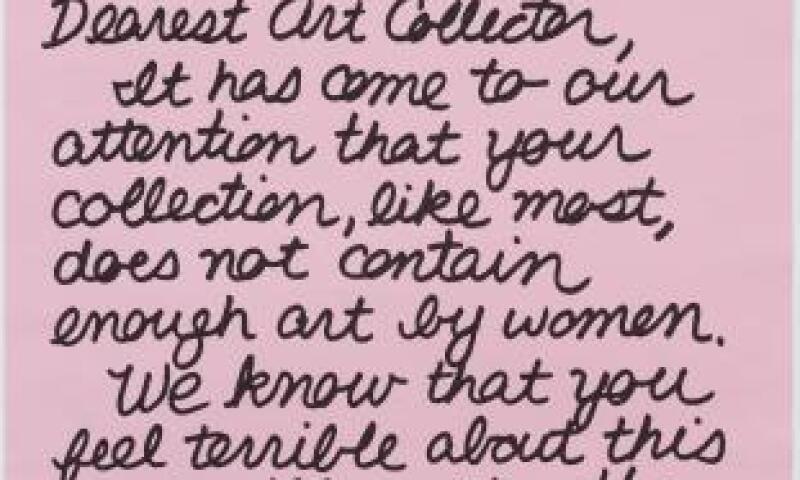 Dearest Art Collector,
It has come to our
attention that your
collection, like most,
does not contain
enough art by women.
We know that you
feel terrible about this